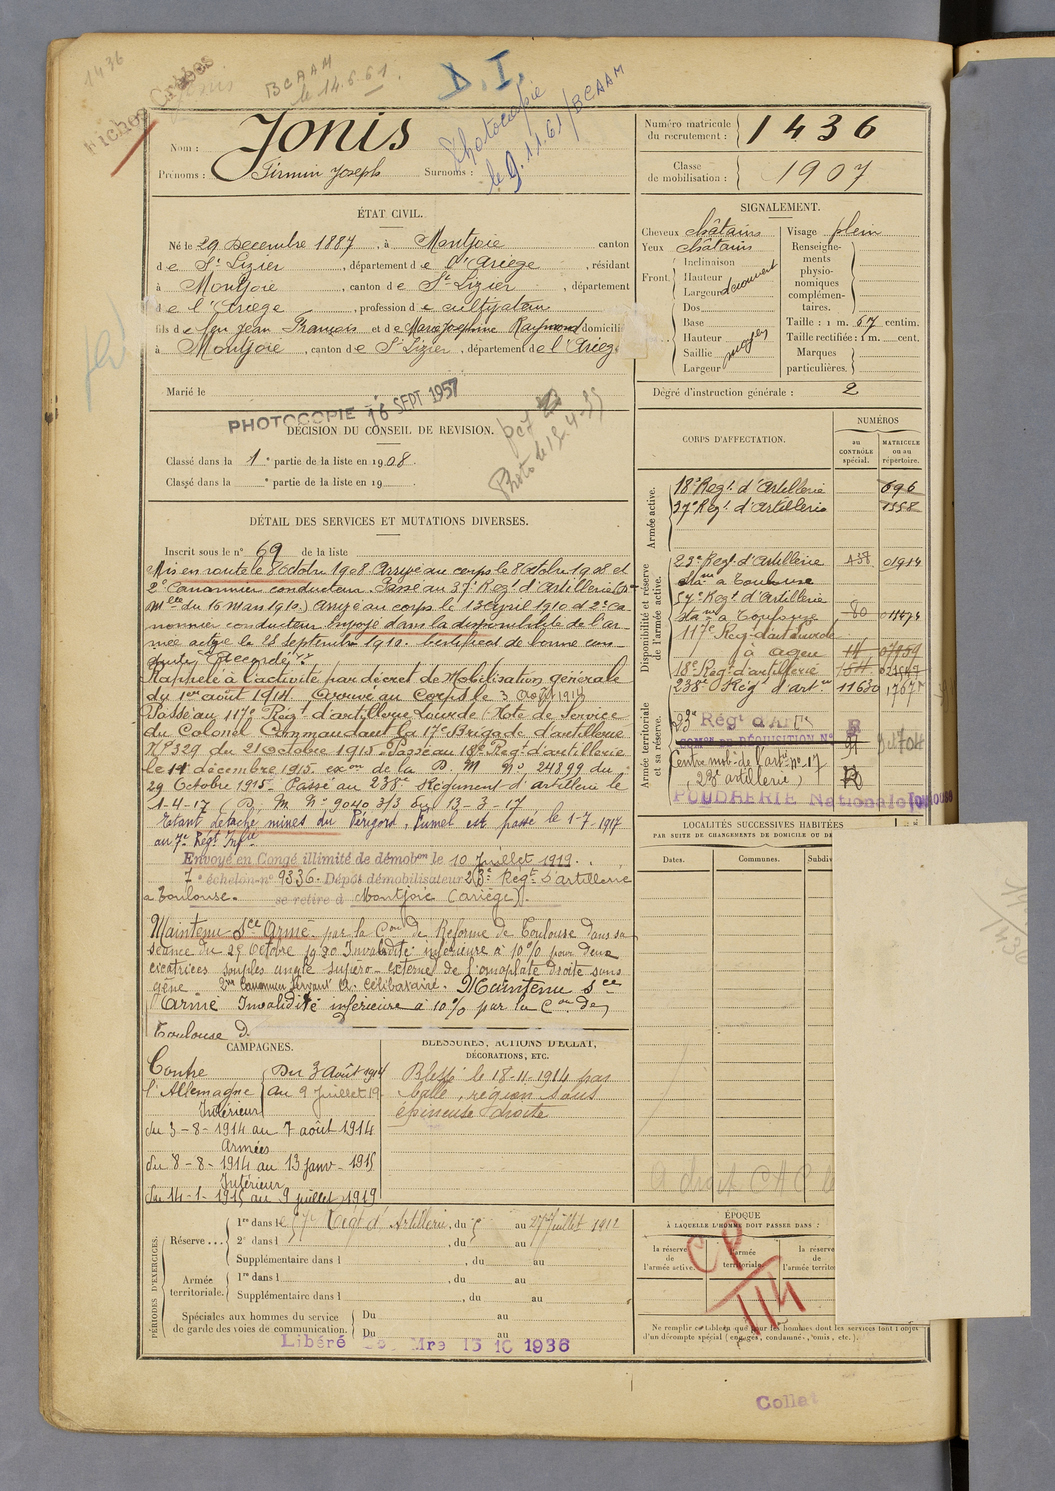 1436
Fiches Créées
BCAAM
le 14.6.61.
D.I.
Photocopie
le 9.11.61/BCAAM
Nom : Jonis
Prénoms : Firmin Joseph Surnoms :
Numéro matricule du recrutement : 1436
Classe de mobilisation : 1907
ÉTAT CIVIL.
Né le 29 Décembre 1887, à Montjoie canton
de St Lizier, département de l'Ariège, résidant
à Montjoie, canton de St Lizier, département
de l'Ariège, profession de cultivateur
fils de feu Jean François et de Marie Josephine Raymond domicilié
à Montjoie, canton de St Lizier, département de l'Ariège
Marié le
PHOTOCOPIE 16 SEPT 1957
SIGNALEMENT.
Cheveux châtains
Yeux châtains
Front Inclinaison
Hauteur
Largeur découvert
Dos
Base
Hauteur
Saillie moyen
Largeur
Visage plein
Renseignements physionomiques complémentaires.
Taille : 1 m. 67 centim.
Taille rectifiée : 1 m. cent.
Marques particulières.
Dégré d'instruction générale : 2
DÉCISION DU CONSEIL DE REVISION.
Classé dans la 1e partie de la liste en 1908.
Classé dans la e partie de la liste en 19
Photo le 12-4-39
DÉTAIL DES SERVICES ET MUTATIONS DIVERSES.
Inscrit sous le n° 69 de la liste
Mis en route le 8 octobre 1908. Arrivé au corps le 8 octobre 1908 et
2e Canonnier conducteur. Passé au 37e Regt d'Artillerie
du 16 Mars 1910) arrivé au corps le 12 Avril 1910 et 2e Ca
nonnier conducteur. Envoyé dans la disponibilité de l'ar
mée active le 28 septembre 1910. Certificat de bonne con
duite "Accordé".
Rappelé à l'activité par décret de Mobilisation générale
du 1er août 1914. Arrivé au Corps le 3 août 1914
Passé au 117e Régt d'artillerie Lourde (Note de Service
du Colonel Commandant la 17e Brigade d'artillerie
N° 329 du 21 octobre 1915. Passé au 18e Regt d'artillerie
le 11 décembre 1915. exon de la D. M. N° 24899 du
29 Octobre 1915. Passé au 238me Régiment d'artillerie le
1-4-17 (D. M. N° 9040 3/3 du 13-3-17
Etant détaché mines du Périgord, Fumel est passé le 1-7-1917
au 7e Régt Infie
Envoyé en Congé illimité de démobon le 10 Juillet 1919.
7e échelon n° 9336. Dépôt démobilisateur 23e Regt d'artillerie
à Toulouse. se retire à Montjoie (Ariège).
Maintenu Sce Armé. par la Con de Réforme de Toulouse dans sa
séance du 25 Octobre 1920 Invalidité inférieure à 10% pour deux
cicatrices souples angle supéro-externe de l'omoplate droite sans
gêne. 2me Canonnier Servant A. célibataire. Maintenu Sce
Armé Invalidité inférieure à 10% par la Con de
Toulouse d
CORPS D'AFFECTATION.
NUMÉROS
au CONTRÔLE spécial.
MATRICULE ou au répertoire.
Armée active.
18e Regt. d'Artillerie 696
37e Regt. d'Artillerie 1358
Disponibilité et réserve de l'armée active.
23e Regt d'Artillerie
à Toulouse
57e Regt d'Artillerie
à Toulouse 80
117e Reg d'art Lourde
à Agen
18e Regt d'artillerie
238e Rég d'artie 11630 17677
Armée territoriale et sa réserve.
23e Régt d'Artie R
COMon DE RÉQUISITION N°
Centre mobe de l'artie n° 17
(23e artillerie)
POUDRERIE Nationale Toulouse
LOCALITÉS SUCCESSIVES HABITÉES
PAR SUITE DE CHANGEMENTS DE DOMICILE OU DE
Dates.
Communes.
Subdiv
A droit CAC
CAMPAGNES.
Contre l'Allemagne Du 3 Août 1914
au 9 Juillet 19
Intérieur
du 3-8-1914 au 7 août 1914
Armées
du 8-8-1914 au 13 janv-1915
Intérieur
du 14-1-1915 au 9 juillet 1919
BLESSURES, ACTIONS D'ÉCLAT, DÉCORATIONS, ETC.
Blessé le 18-11-1914 par
balle, région sous
épineuse droite
PÉRIODES D'EXERCICES.
Réserve... 1re dans le 57e Regt d'Artillerie, du au 27 Juillet 1912
2e dans l , du au
Supplémentaire dans l , du au
Armée territoriale. 1re dans l , du au
Supplémentaire dans l , du au
Spéciales aux hommes du service de garde des voies de communication. Du au
Du au
Libéré Mre 15 10 1936
ÉPOQUE
À LAQUELLE L'HOMME DOIT PASSER DANS :
la réserve de l'armée active.
l'armée territoriale.
la réserve de l'armée territo
CP
114
Ne remplir ce tableau que pour les hommes dont les services font l'objet
d'un décompte spécial (engagés, condamnés, omis, etc.).
Collat